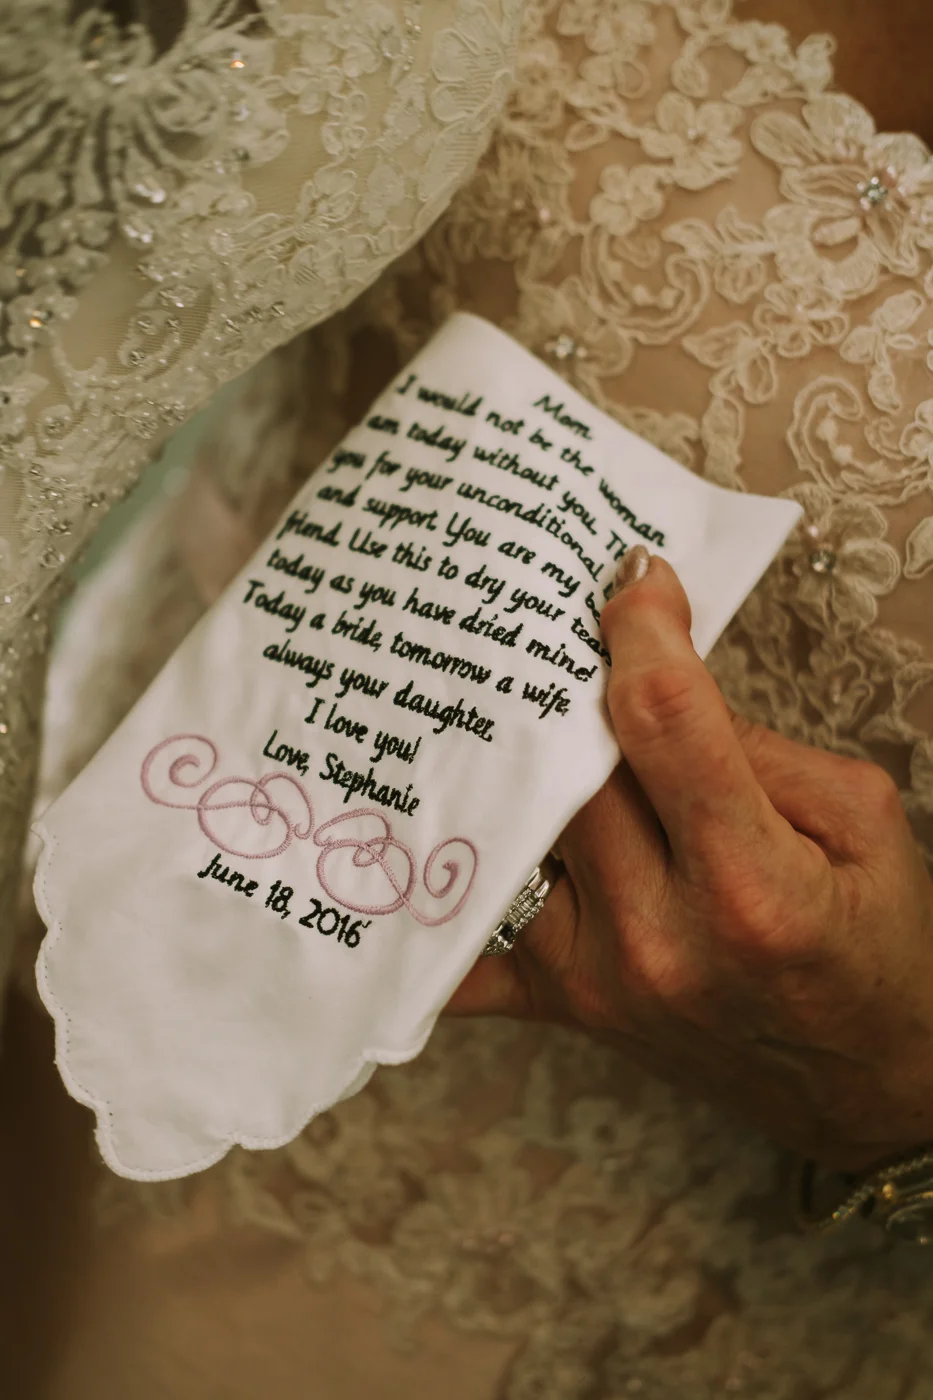 Mom,
I would not be the woman
am today without you.
you for your unconditional
and support. You are my
friend. Use this to dry your tears
today as you have dried mine!
Today a bride, tomorrow a wife,
always your daughter,
I love you!
Love, Stephanie
June 18, 2016